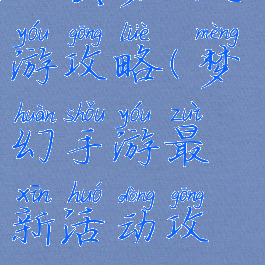 yóu gōng lüè mèng
游攻略(梦
huàn shǒu yóu zuì
幻手游最
xīn huó dòng gōng
新活动攻